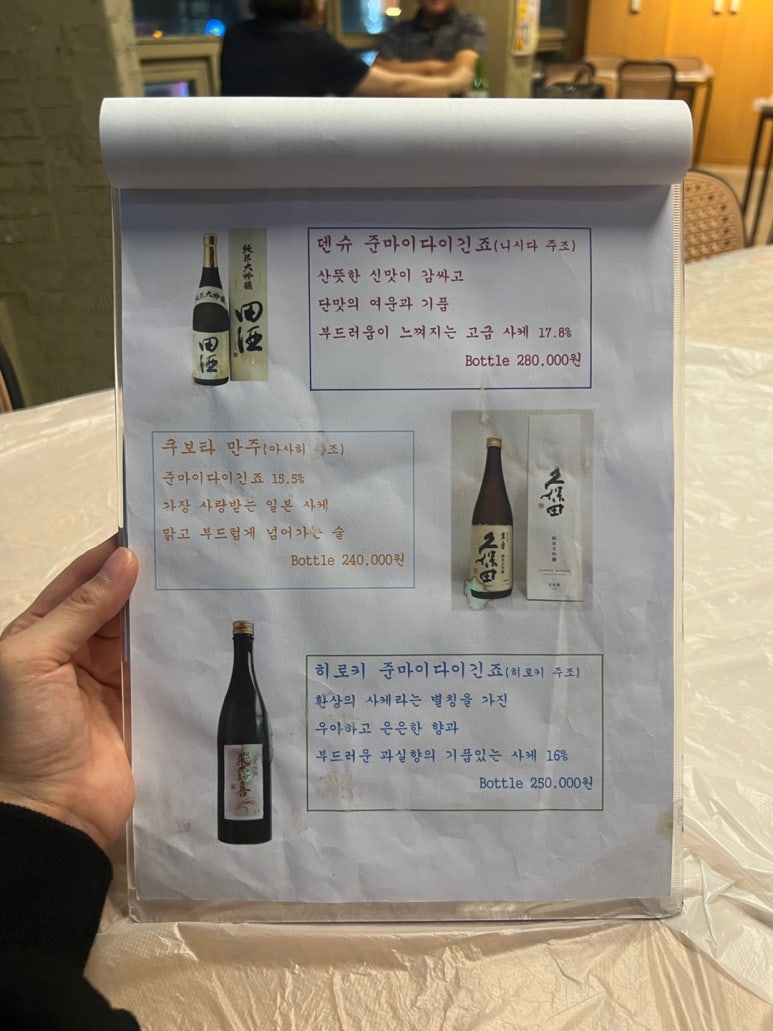 純米大吟醸
田酒
純米大吟醸
田酒
덴슈 준마이다이긴죠(니시다 주조)
산뜻한 신맛이 감싸고
단맛의 여운과 기품
부드러움이 느껴지는 고급 사케 17.8%
Bottle 280,000원
쿠보타 만주(아사히 조)
준마이다이긴죠 15.5%
가장 사랑받는 일본 사케
맑고 부드럽게 넘어가는 술
Bottle 240,000원
久保田
萬寿
久保田
純米大吟醸
히로키 준마이다이긴죠(히로키 주조)
환상의 사케라는 별칭을 가진
우아하고 은은한 향과
부드러운 과실향의 기품있는 사케 16%
Bottle 250,000원